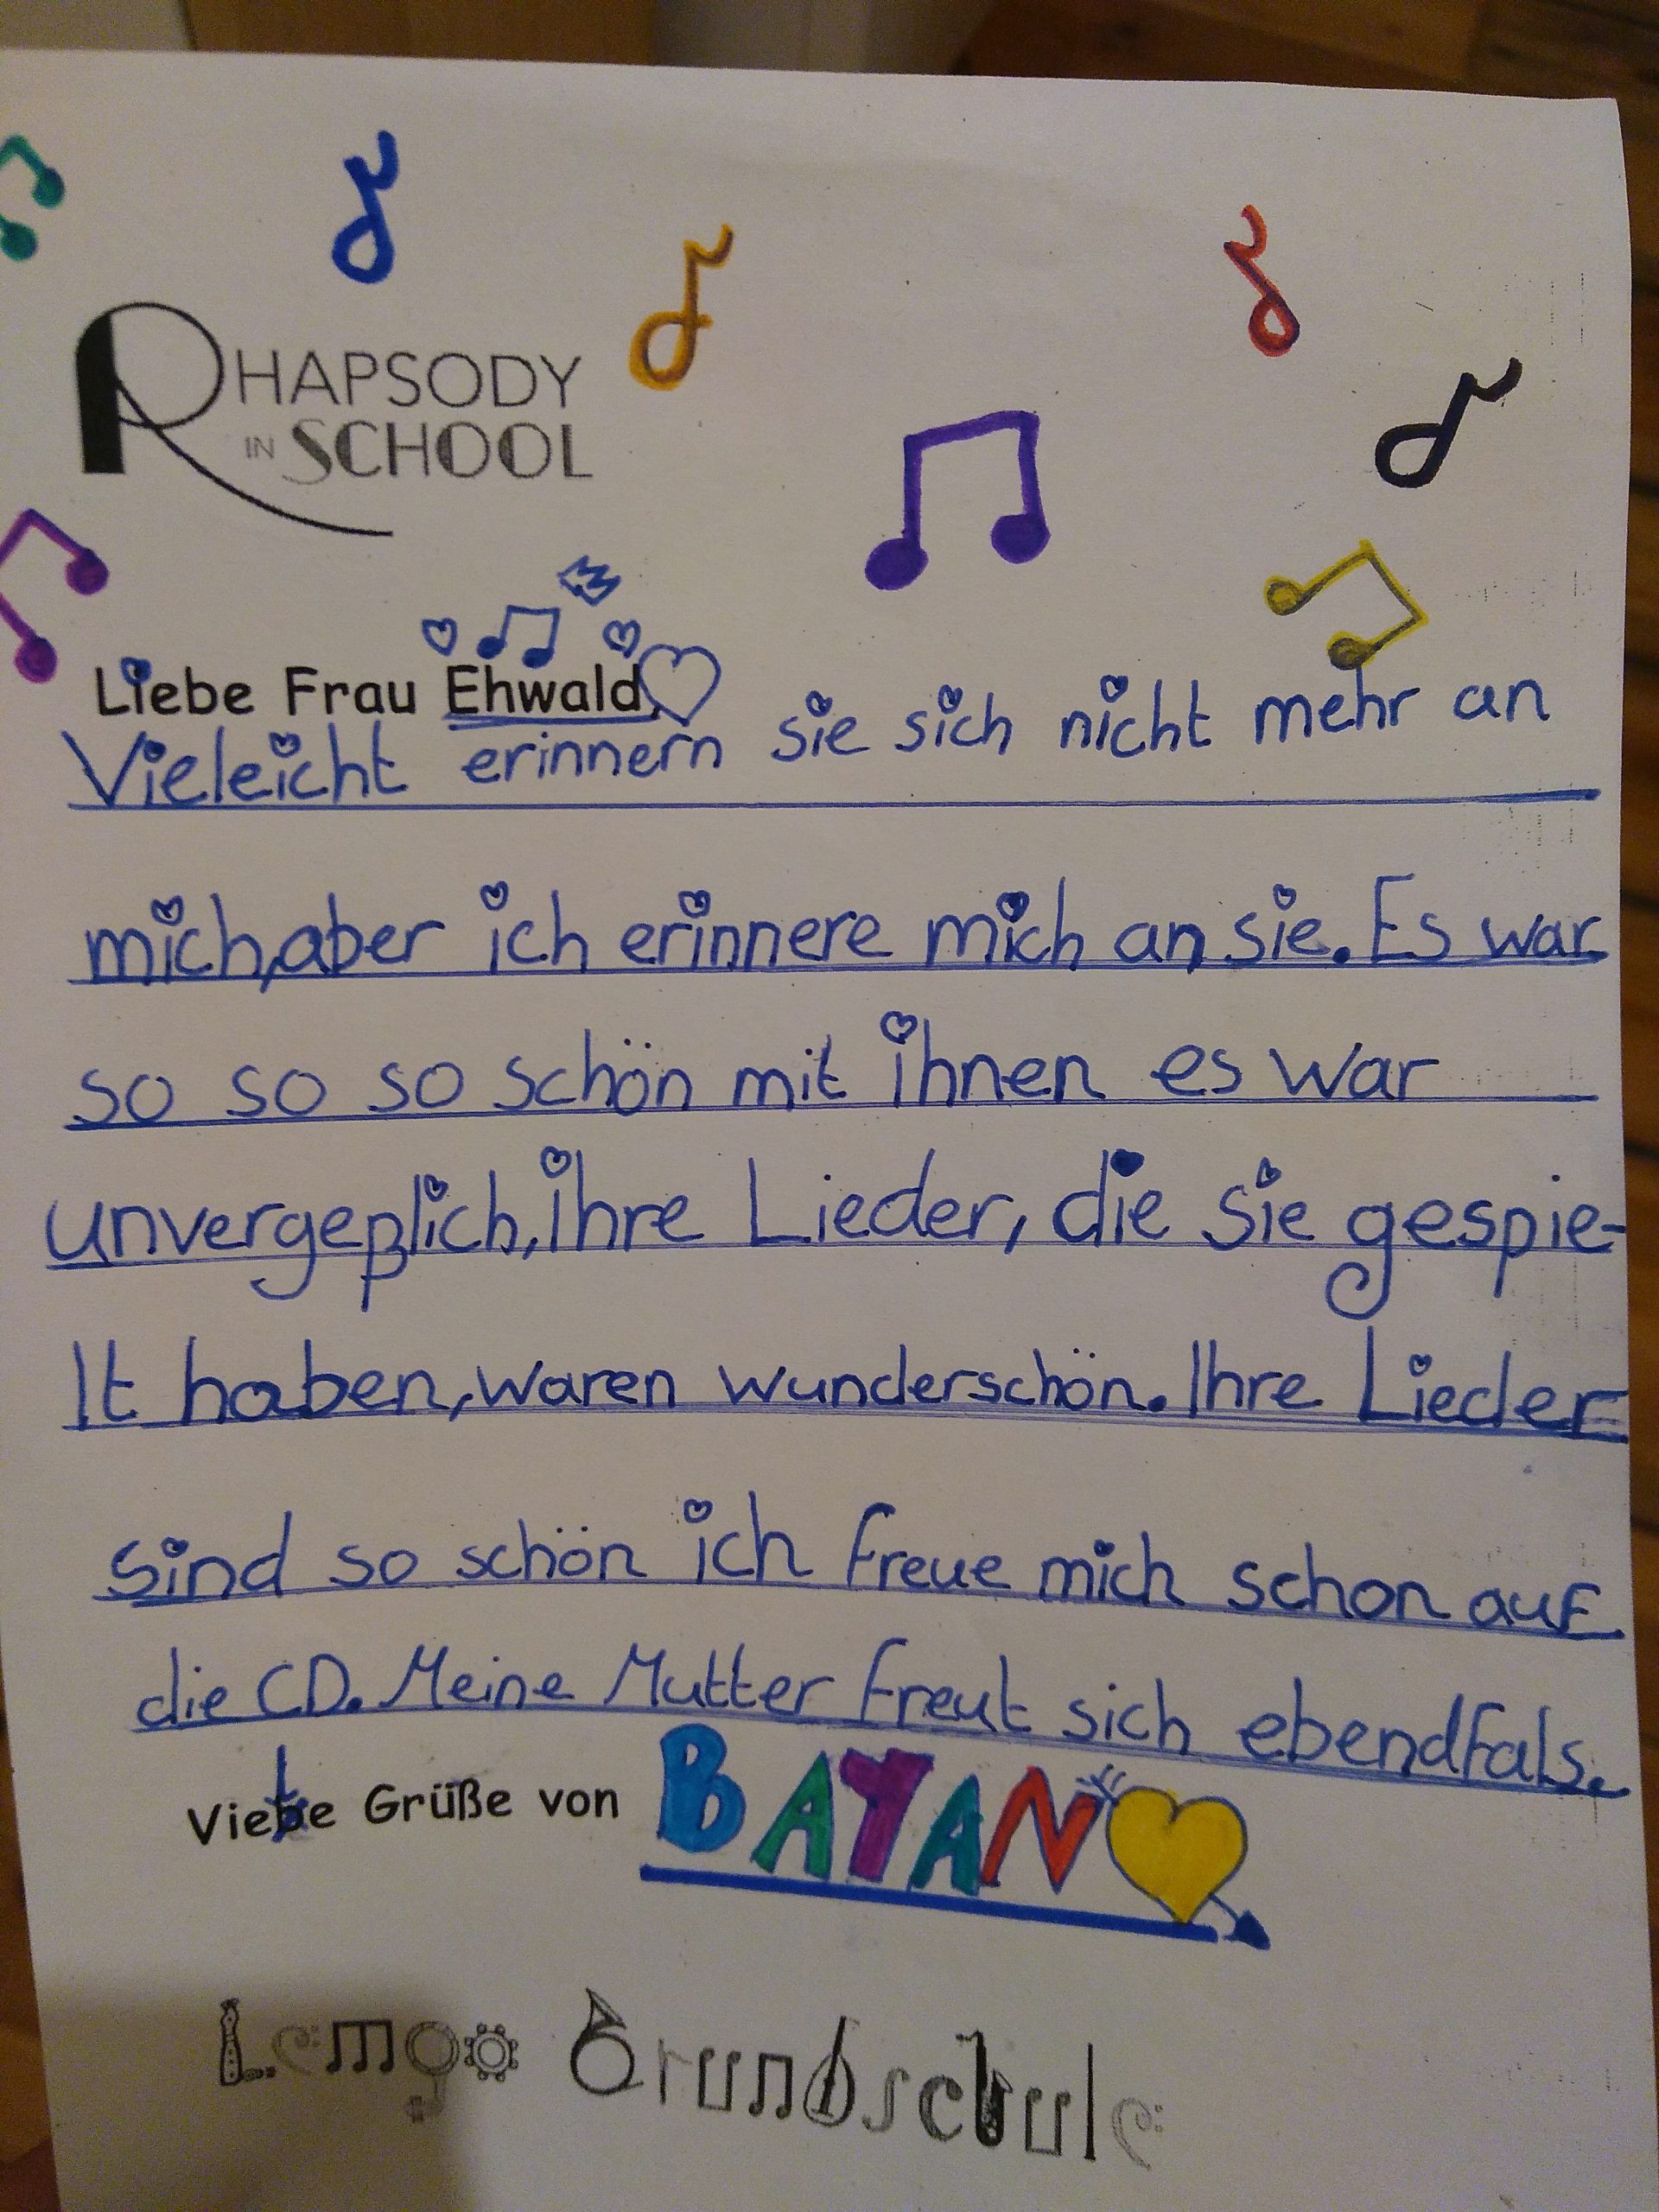 RHAPSODY
IN SCHOOL
Liebe Frau Ehwald,
Vieleicht erinnern sie sich nicht mehr an
mich,aber ich erinnere mich an sie. Es war
so so so schön mit ihnen es war
unvergeßlich, ihre Lieder, die sie gespie-
lt haben, waren wunderschön. Ihre Lieder
sind so schön ich freue mich schon auf
die CD. Meine Mutter freut sich ebendfals.
Viele Grüße von BAYAN
Lemgo Grundschule